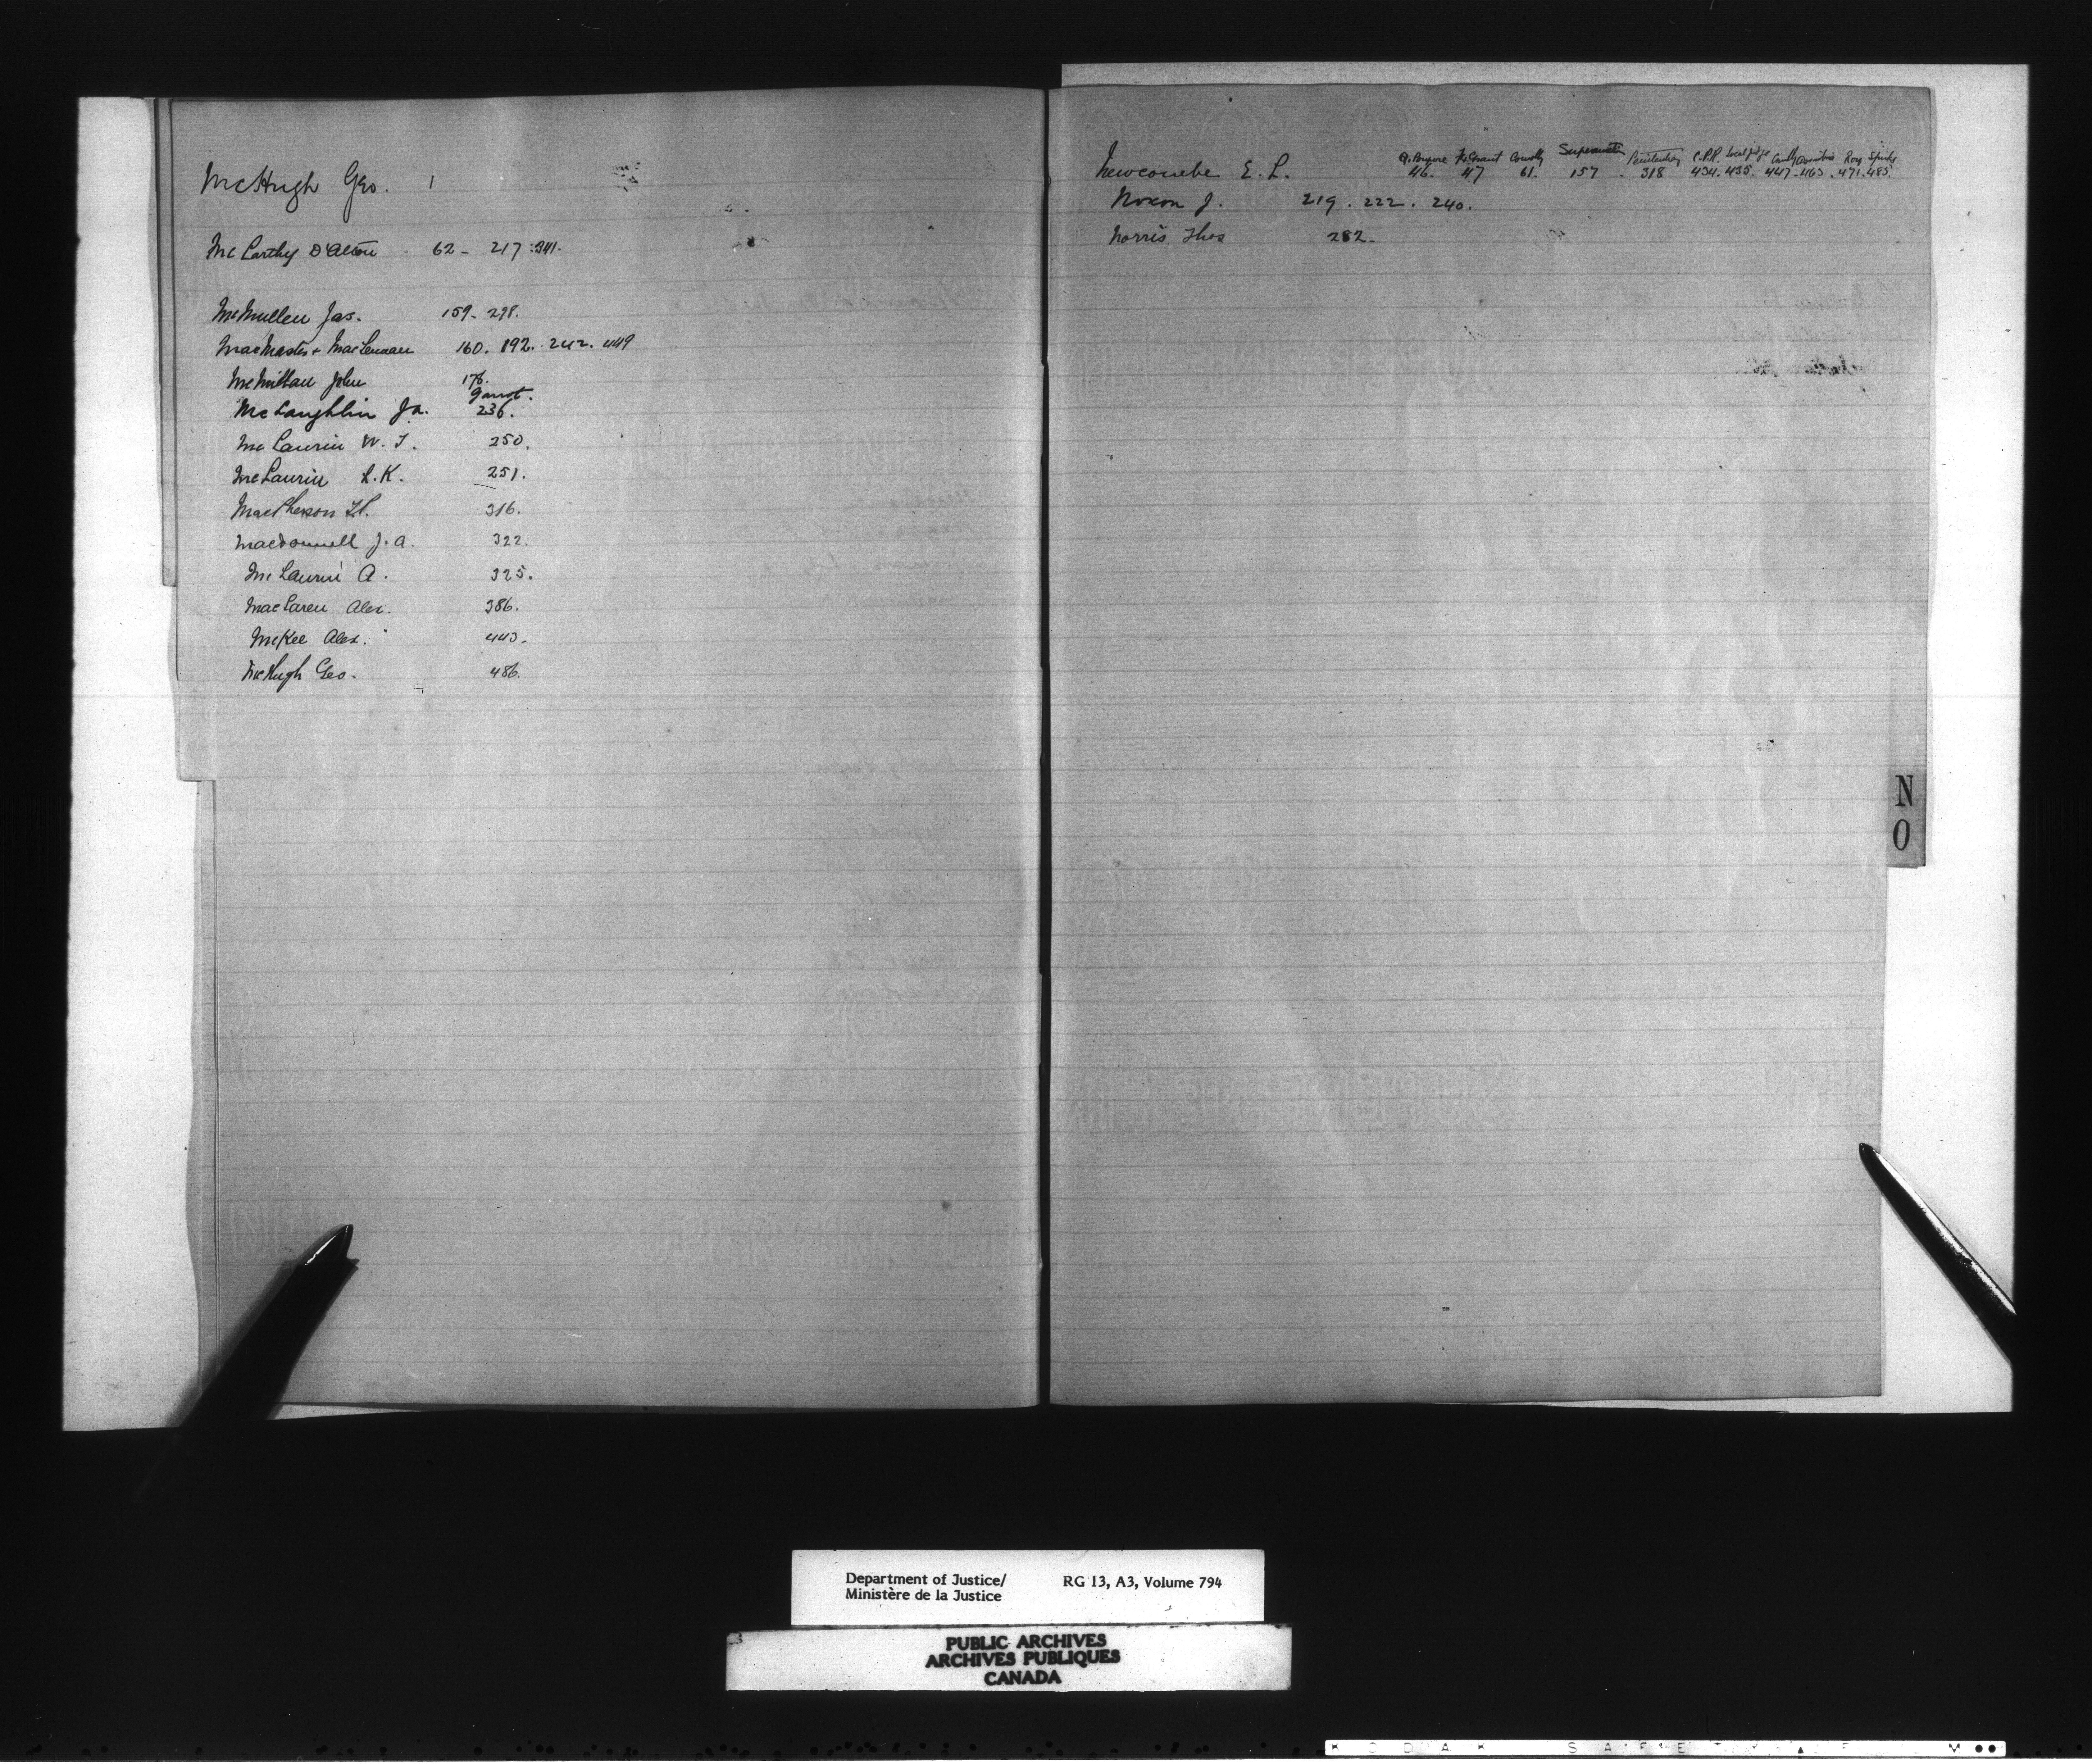 McHugh Geo. 1
McCarthy D'Alton 62 - 217 : 341.
McMullen Jas. 159 - 298.
MacMaster + MacLennan 160. 192. 242. 449
McMillan John 176.
McLaughlin Ja. 236.
McLaurin W. J. 250.
McLaurin L. K. 251.
MacPherson 316.
Macdonnell J. A. 322.
McLaurin A. 325.
MacLaren Alex. 386.
McKee Alex. 443.
McHugh Geo. 486.
Grant Connolly Penitentiary C.P.R. Local judge Roy
Newcombe E. L. 46. 47 61. 157. 318 434. 435. 447 - 463. 471. 485.
Noxon J. 219. 222. 240.
Norris Thos 282.
N
O
Department of Justice/ RG 13, A3, Volume 794
Ministère de la Justice
PUBLIC ARCHIVES
ARCHIVES PUBLIQUES
CANADA
KODAK SAFETY